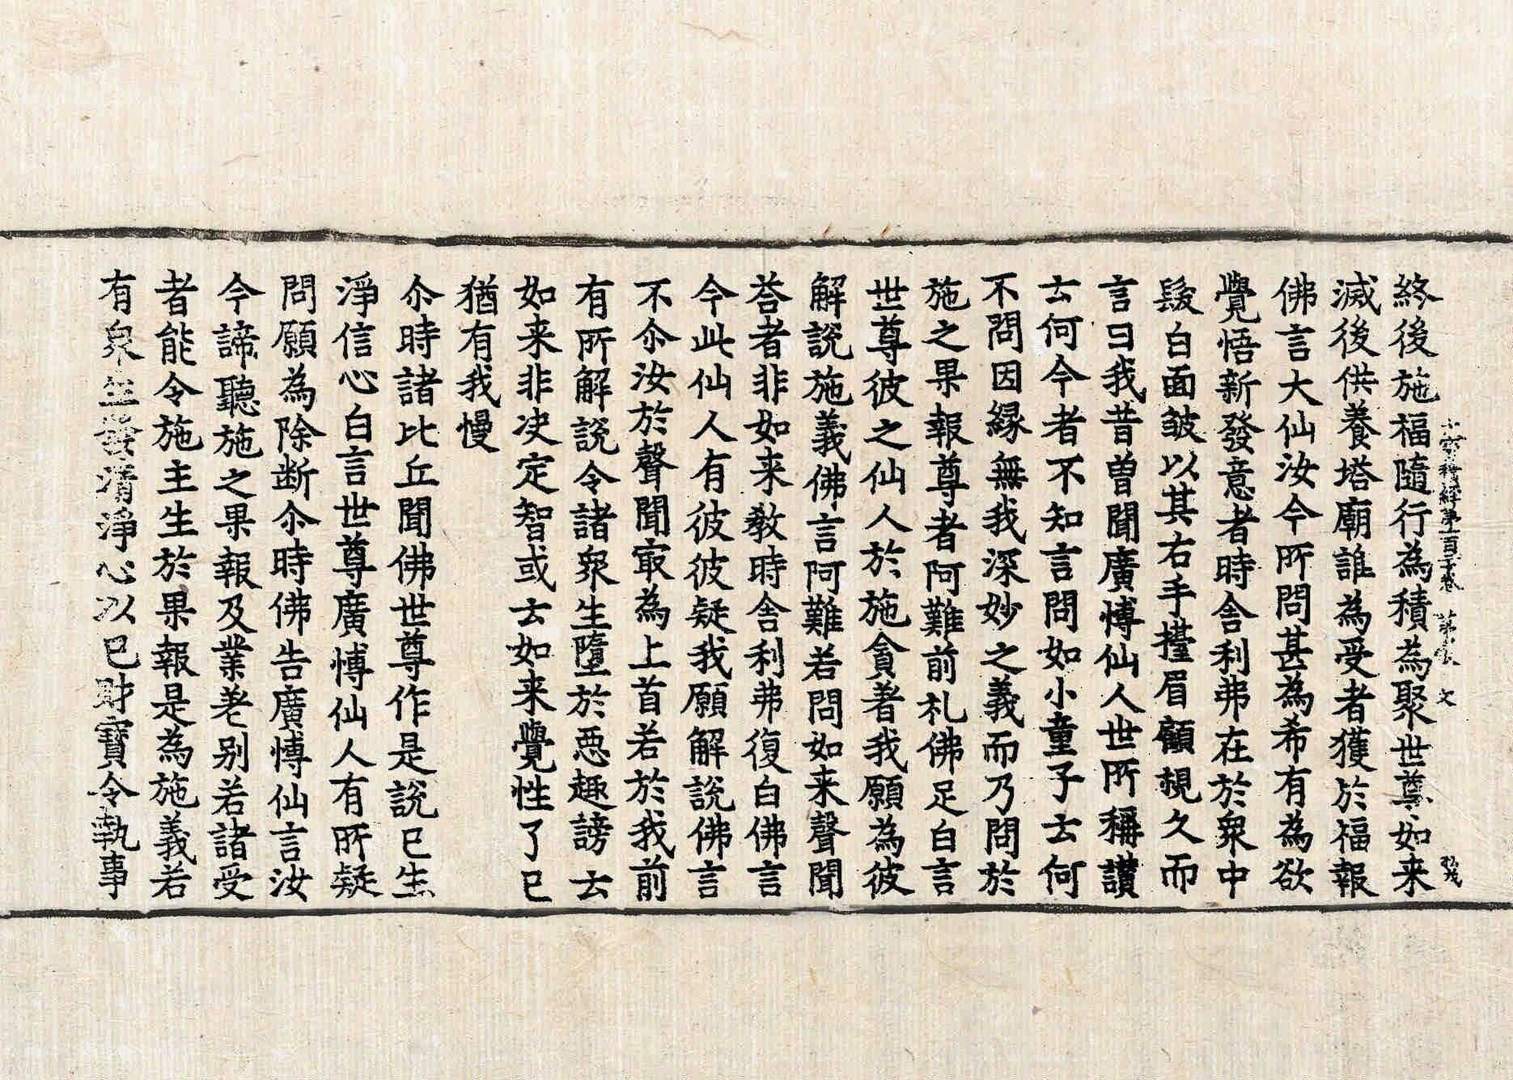 寶積經第一百二十卷 文
終後施福隨行為積為聚世尊如来
滅後供養塔廟誰為受者獲於福報
佛言大仙汝今所問甚為希有為欲
覺悟新發意者時舍利弗在於衆中
髮白面皺以其右手擡眉顧視久而
言曰我昔曽聞廣博仙人世所稱讃
云何今者不知言問如小童子云何
不問因縁無我深妙之義而乃問於
施之果報尊者阿難前礼佛足白言
世尊彼之仙人於施貪著我願為彼
解說施義佛言阿難若問如来聲聞
荅者非如来教時舍利弗復白佛言
今此仙人有彼彼疑我願解說佛言
不尒汝於聲聞㝡為上首若於我前
有所解說令諸衆生墮於惡趣謗云
如来非决定智或云如来覺性了已
猶有我慢
尒時諸比丘聞佛世尊作是說已生
淨信心白言世尊廣博仙人有所疑
問願為除断尒時佛告廣博仙言汝
今諦聽施之果報及業差别若諸受
者能令施主生於果報是為施義若
有衆生發清淨心以已財寶令執事